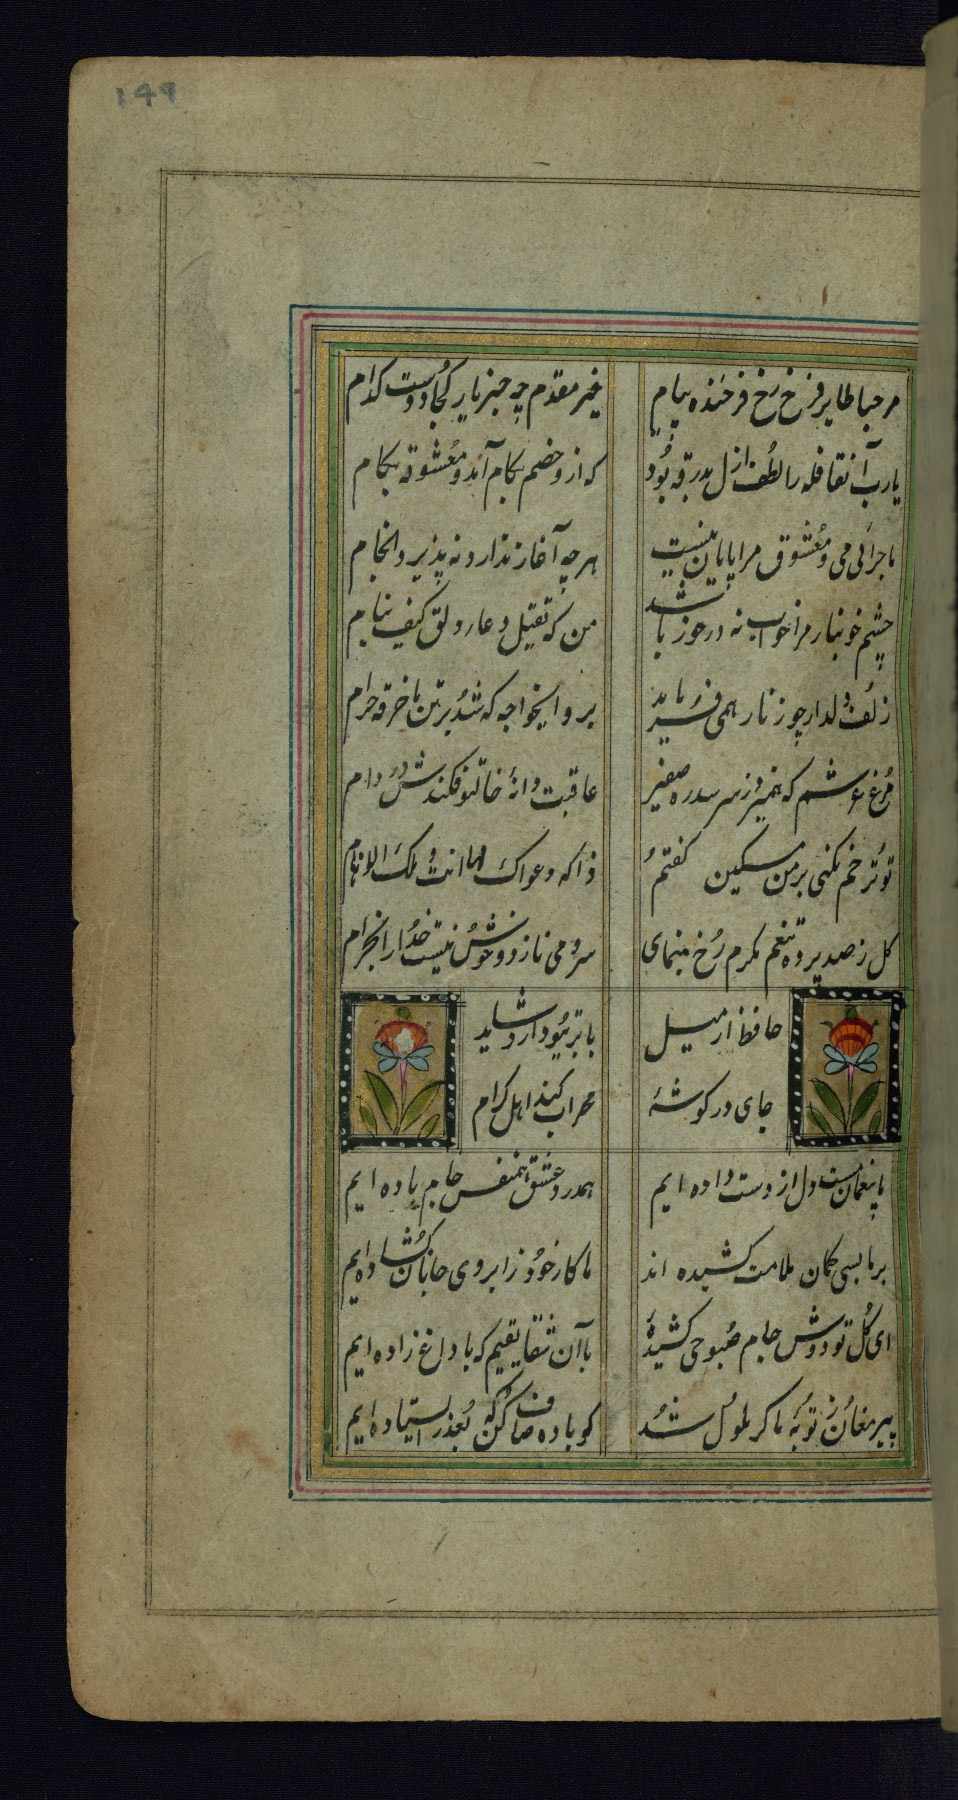 ۱۴۹
مرحبا طایر فرخ رخ فرخنده پیام
خیر مقدم چه خبر یار کجا دوست کدام
یارب آنقافله را لطف ازل بدرقه بود
که ازو خصم بکام آمد و معشوقه بکام
ماجرای می و معشوق مرا پایان نیست
هرچه آغاز ندارد نه پذیرد انجام
چشم خونبار مرا خواب نه درخور باشد
من که تقتیل دعا رولق کیف ینام
زلف دلدار چو زنار همی فرماید
برو ایخواجه که شد بر تن ما خرقه حرام
مرغ عرشم که همیزد ز سر سدره صفیر
عاقبت دانهٔ خال تو فکندش در دام
تو ترحم نکنی بر من مسکین گفتم
ذاکه دعواک اها انت و تلک الایام
گل ز صد پرده تنعم بکرم رخ بنمای
سرو می نازد و خوش نیست خدا را بخرام
حافظ ار میل بابروی تو دارد شاید
جای در گوشهٔ محراب کنند اهل کرام
ما پیغمان مست دل از دست داده ایم
همدرد عشق و همنفس جام باده ایم
بر ما بسی کمان ملامت کشیده اند
تا کار خود ز ابروی جانان گشاده ایم
ای گل تو دوش جام صبوحی کشیدهٔ
ما آن شقایقیم که با داغ زاده ایم
پیر مغان ز توبهٔ ما گر ملول شد
گو باده صاف کن که بعذر استاده ایم